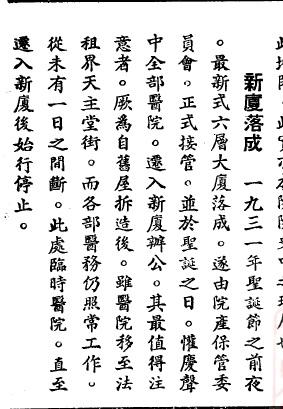 新廈落成　一九三一年聖誕節之前夜
。最新式六層大廈落成。遂由院產保管委
員會。正式接管。並於聖誕之日。懽慶聲
中全部醫院。遷入新廈辦公。其最值得注
意者。厥為自舊屋拆造後。雖醫院移至法
租界天主堂街。而各部醫務仍照常工作。
從未有一日之間斷。此處臨時醫院。直至
遷入新廈後始行停止。